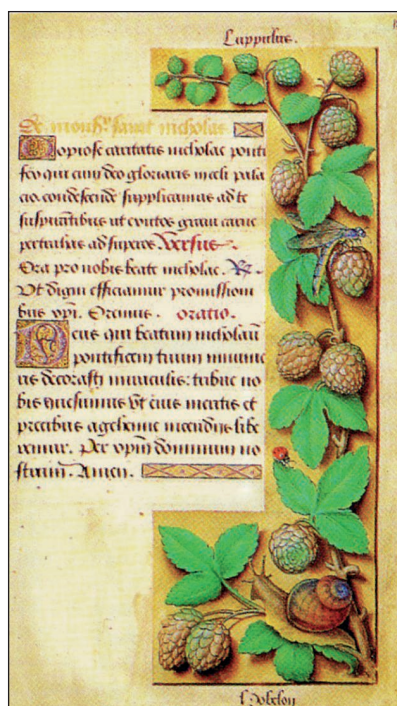 Lupulus.
De monsr. sainct nicholas.
Copiose caritatis nicholae ponti
fex qui cum deo gloriaris in celi pala
cio. condescende supplicamus ad te
suspirantibus ut exutos graui carne
pertrahas ad supera. Versus
Ora pro nobis beate nicholae. R.
Ut digni efficiamur promissioni
bus xpi. Oremus. oratio.
Deus qui beatum nicholaū
pontificem tuum innume
ris decorasti miraculis: tribue no
bis quesumus vt eius meritis et
precibus a gehenne incendijs libe
remur. Per xpm dominum no
strum. Amen.
l'Hobelon